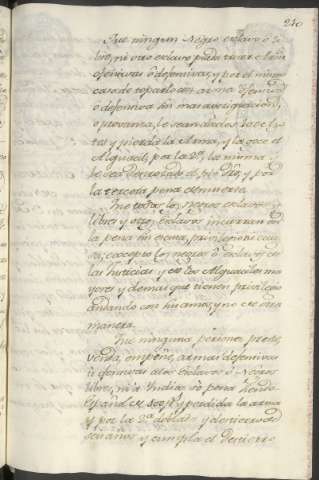 240
Que ningun Negro esclavo ô li-
bre, ni otro esclavo pueda traer Armas
ofensivas ô defensivas, y por el mismo
caso de toparlo con arma ofensiva
ô defensiva sin mas averiguacion,
ô provanza, le sean dados
y pierda la Arma, y la goce el
Alguacil, por la 2ª la misma
le sea pie dro, y por
la tercera pena de muerte.
Que todos los negros esclavos y
libres y otros esclavos incurran en
la pena sin escusa,
excepto los negros ô esclavos de
las Justicias y de los Alguaciles ma
yores y demas que tienen
andando con sus amos, y no de otra
manera.
Que ninguna persona preste,
venda, empeñe, armas defensivas
ô ofensivas a los Esclavos ô Negros
libres, ni a Indios so pena siendo
Español de 500ps y perdida la arma
y por la 2ª doblado y destierro de
seis años y cumpla el destierro